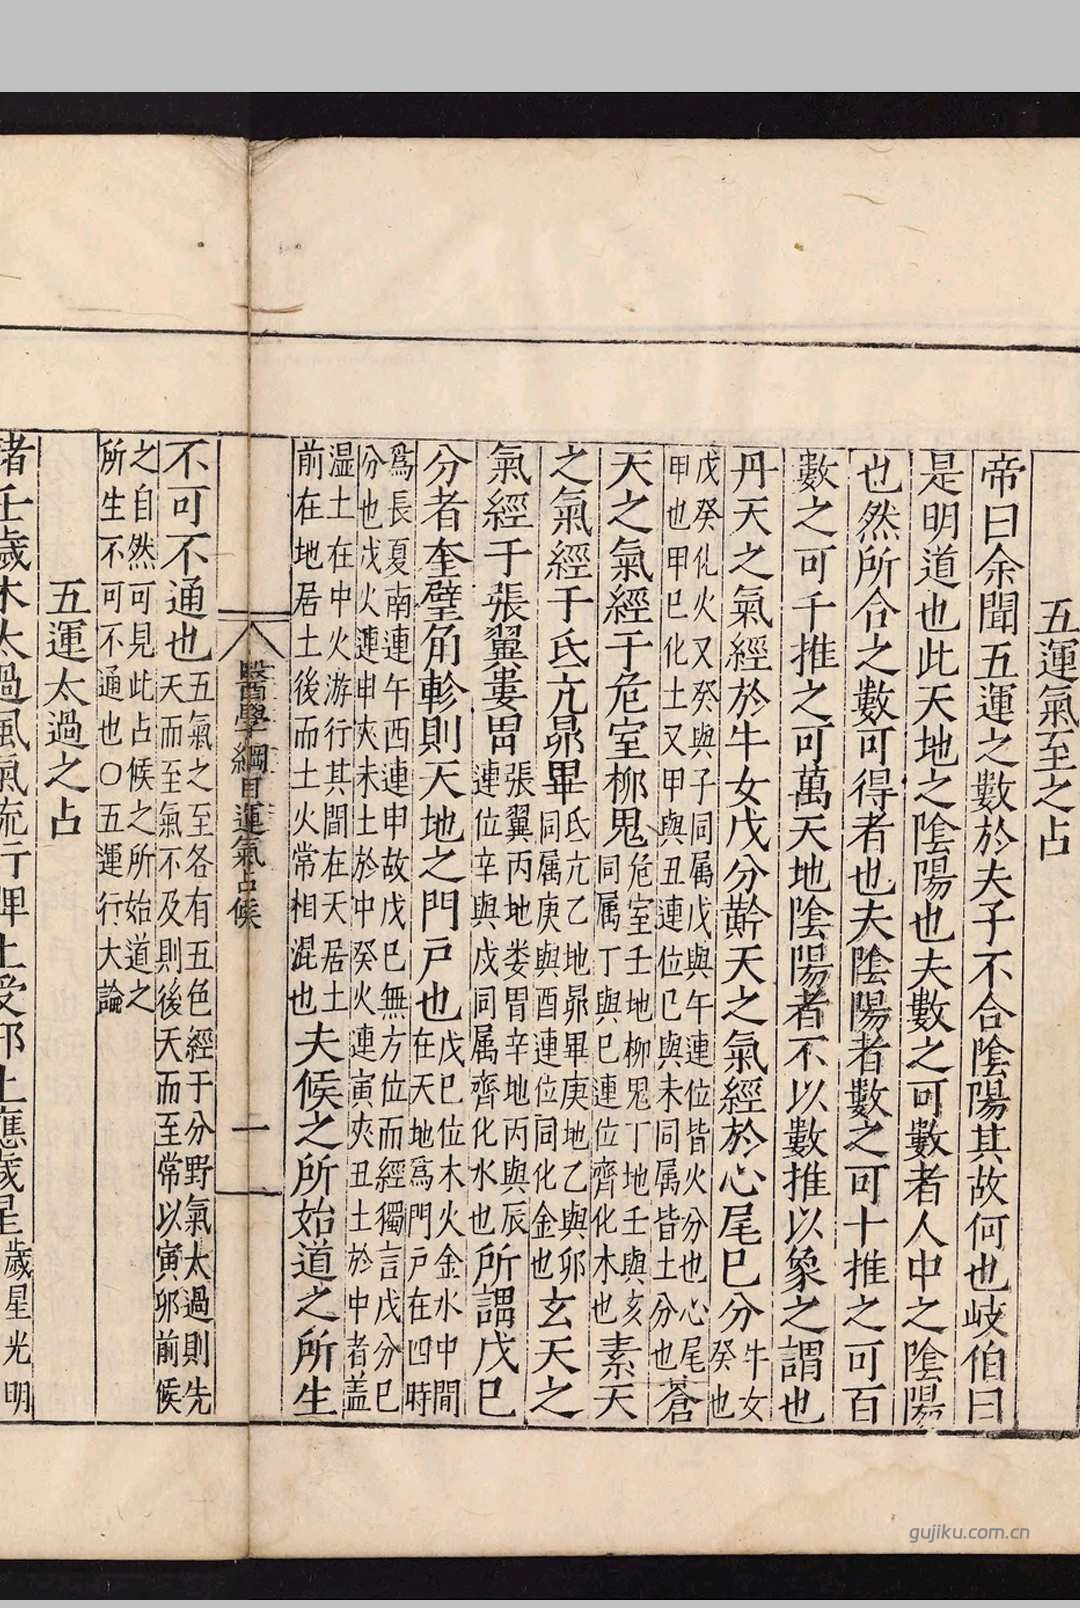 五運氣至之占
帝曰余聞五運之數於夫子不合陰陽其故何也岐伯曰
是明道也此天地之陰陽也夫數之可數者人中之陰陽
也然所合之數可得者也夫陰陽者數之可十推之可百
數之可千推之可萬天地陰陽者不以數推以象之謂也
丹天之氣經於牛女戊分黅天之氣經於心尾巳分牛女癸也
戊癸化火又癸與子同属戊與午連位皆火分也心尾
甲也甲巳化土又甲與丑連位巳與未同属皆土分也蒼
天之氣經于危室柳鬼危室壬地柳鬼丁地壬與亥同属丁與巳連位齊化木也素天
之氣經于氐亢昴畢氐亢乙地昴畢庚地乙與卯同属庚與酉連位同化金也玄天之
氣經于張翼婁胃張翼丙地娄胃辛地丙與辰連位辛與戌同属齊化水也所謂戊巳
分者奎壁角軫則天地之門戸也戊巳位木火金水中間在天地爲門戸在四時
爲長夏南連午西連申故戊巳無方位而經獨言戊分巳
分也戊火連申夾未土於中癸火連寅夾丑土於中者蓋
湿土在中火游行其間在天居土前在地居土後而土火常相混也夫候之所始道之所生
醫學綱目運氣占候 一
不可不通也五氣之至各有五色經于分野氣太過則先天而至氣不及則後天而至常以寅卯前候
之自然可見此占候之所始道之
所生不可不通也○五運行大論
五運太過之占
諸壬歲木太過風氣流行脾土受邪上應歲星歲星光明
gujiku.com.cn